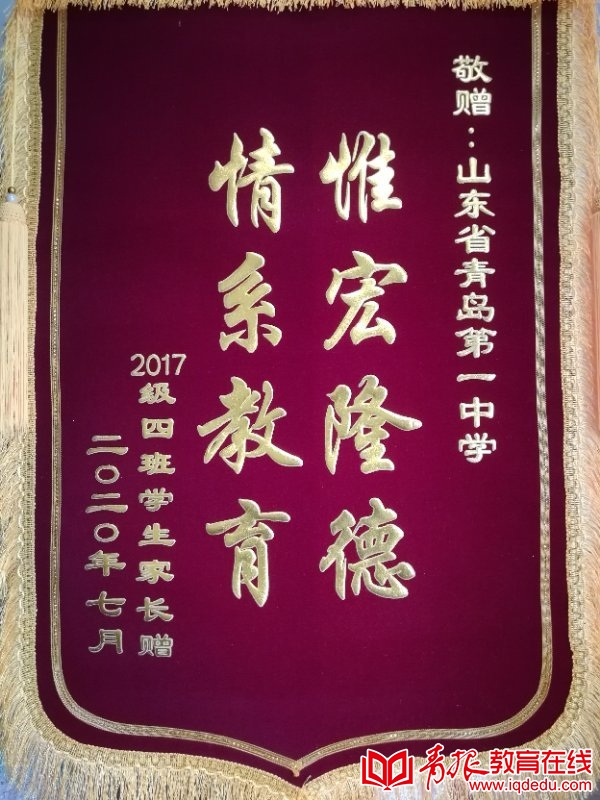 敬赠：山东省青岛第一中学
惟宏隆德
情系教育
2017级四班学生家长赠
二〇二〇年七月
青报教育在线
www.iqdedu.com